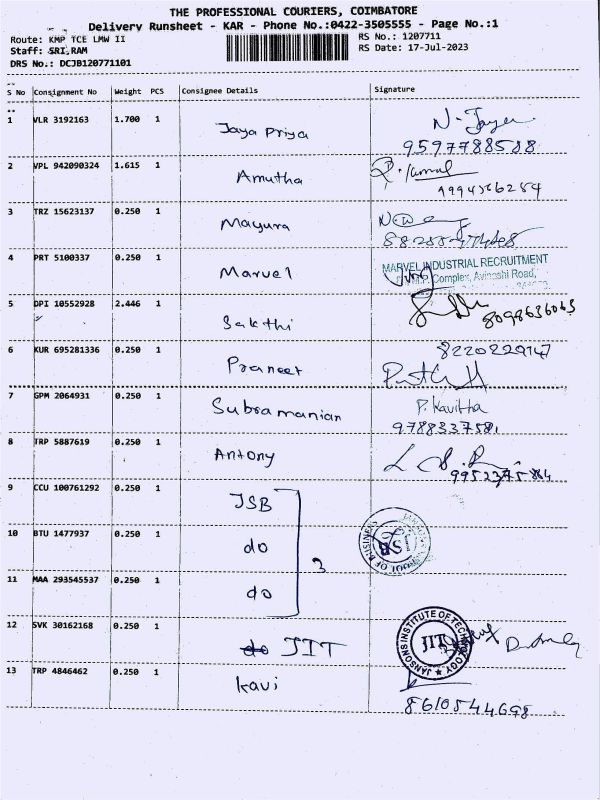 THE PROFESSIONAL COURIERS, COIMBATORE
Delivery Runsheet - KAR - Phone No.:0422-3505555 - Page No.:1
Route: KMP TCE LMW II RS No.: 1207711
Staff: SRI RAM RS Date: 17-Jul-2023
DRS No.: DCJB120771101
S No Consignment No Weight PCS Consignee Details Signature
1 VLR 3192163 1.700 1 Jaya Priya
9597788588
2 VPL 942090324 1.615 1 Amutha
9994566254
3 TRZ 15623137 0.250 1 Mayura
4 PRT 5100337 0.250 1 Marvel MARVEL INDUSTRIAL RECRUITMENT
Complex, Avinashi Road,
5 DPI 10552928 2.446 1 Sakthi 8098636063
6 KUR 695281336 0.250 1 Praneet 8220229147
7 GPM 2064931 0.250 1 Subramanian P. Kavitha
9788337581
8 TRP 5887619 0.250 1 Antony
9 CCU 100761292 0.250 1 JSB
10 BTU 1477937 0.250 1 do 3 JSB
11 MAA 293545537 0.250 1 do
12 SVK 30162168 0.250 1 do JIT JANSONS INSTITUTE OF TECHNOLOGY JIT
13 TRP 4846462 0.250 1 Kavi
8610544698